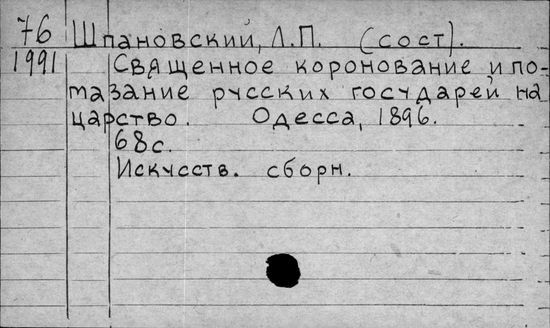 76 Шпановский, Л.П. (сост).
1991 Священное коронование и по-
мазание русских государей на
царство. Одесса, 1896.
68с.
Искусств. сборн.